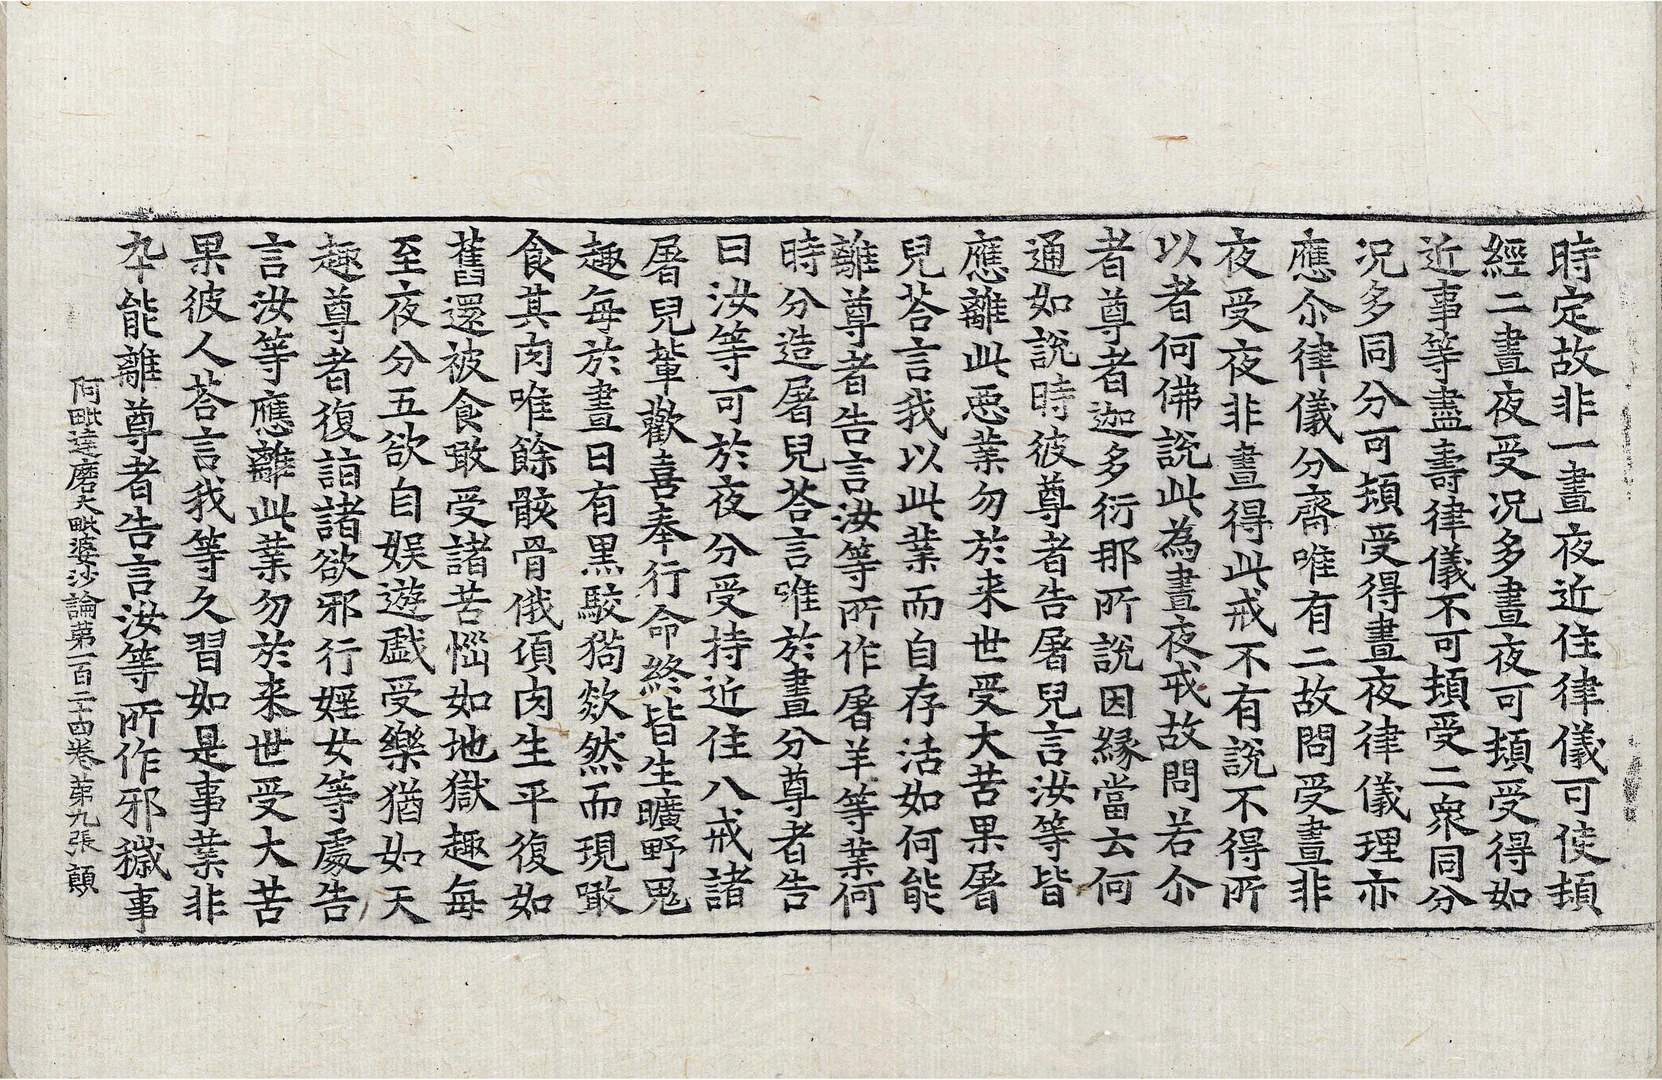 時定故非一晝夜近住律儀可使頓
經二晝夜受况多晝夜可頓受得如
近事等盡壽律儀不可頓受二衆同分
况多同分可頓受得晝夜律儀理亦
應尒律儀分齊唯有二故問受晝非
夜受夜非晝得此戒不有說不得所
以者何佛說此為晝夜戒故問若尒
者尊者迦多衍那所說因緣當云何
通如說時彼尊者告屠兒言汝等皆
應離此惡業勿於来世受大苦果屠
兒荅言我以此業而自存活如何能
離尊者告言汝等所作屠羊等業何
時分造屠兒荅言唯於晝分尊者告
曰汝等可於夜分受持近住八戒諸
屠兒輩歡喜奉行命終皆生曠野鬼
趣每於晝日有黑駮狗欻然而現噉
食其肉唯餘骸骨俄頃肉生平復如
舊還被食噉受諸苦惱如地獄趣每
至夜分五欲自娛遊戲受樂猶如天
趣尊者復詣諸欲邪行婬女等處告
言汝等應離此業勿於来世受大苦
果彼人荅言我等久習如是事業非
卒能離尊者告言汝等所作邪穢事
阿毗達磨大毗婆沙論第一百二十四卷 第九張 顛